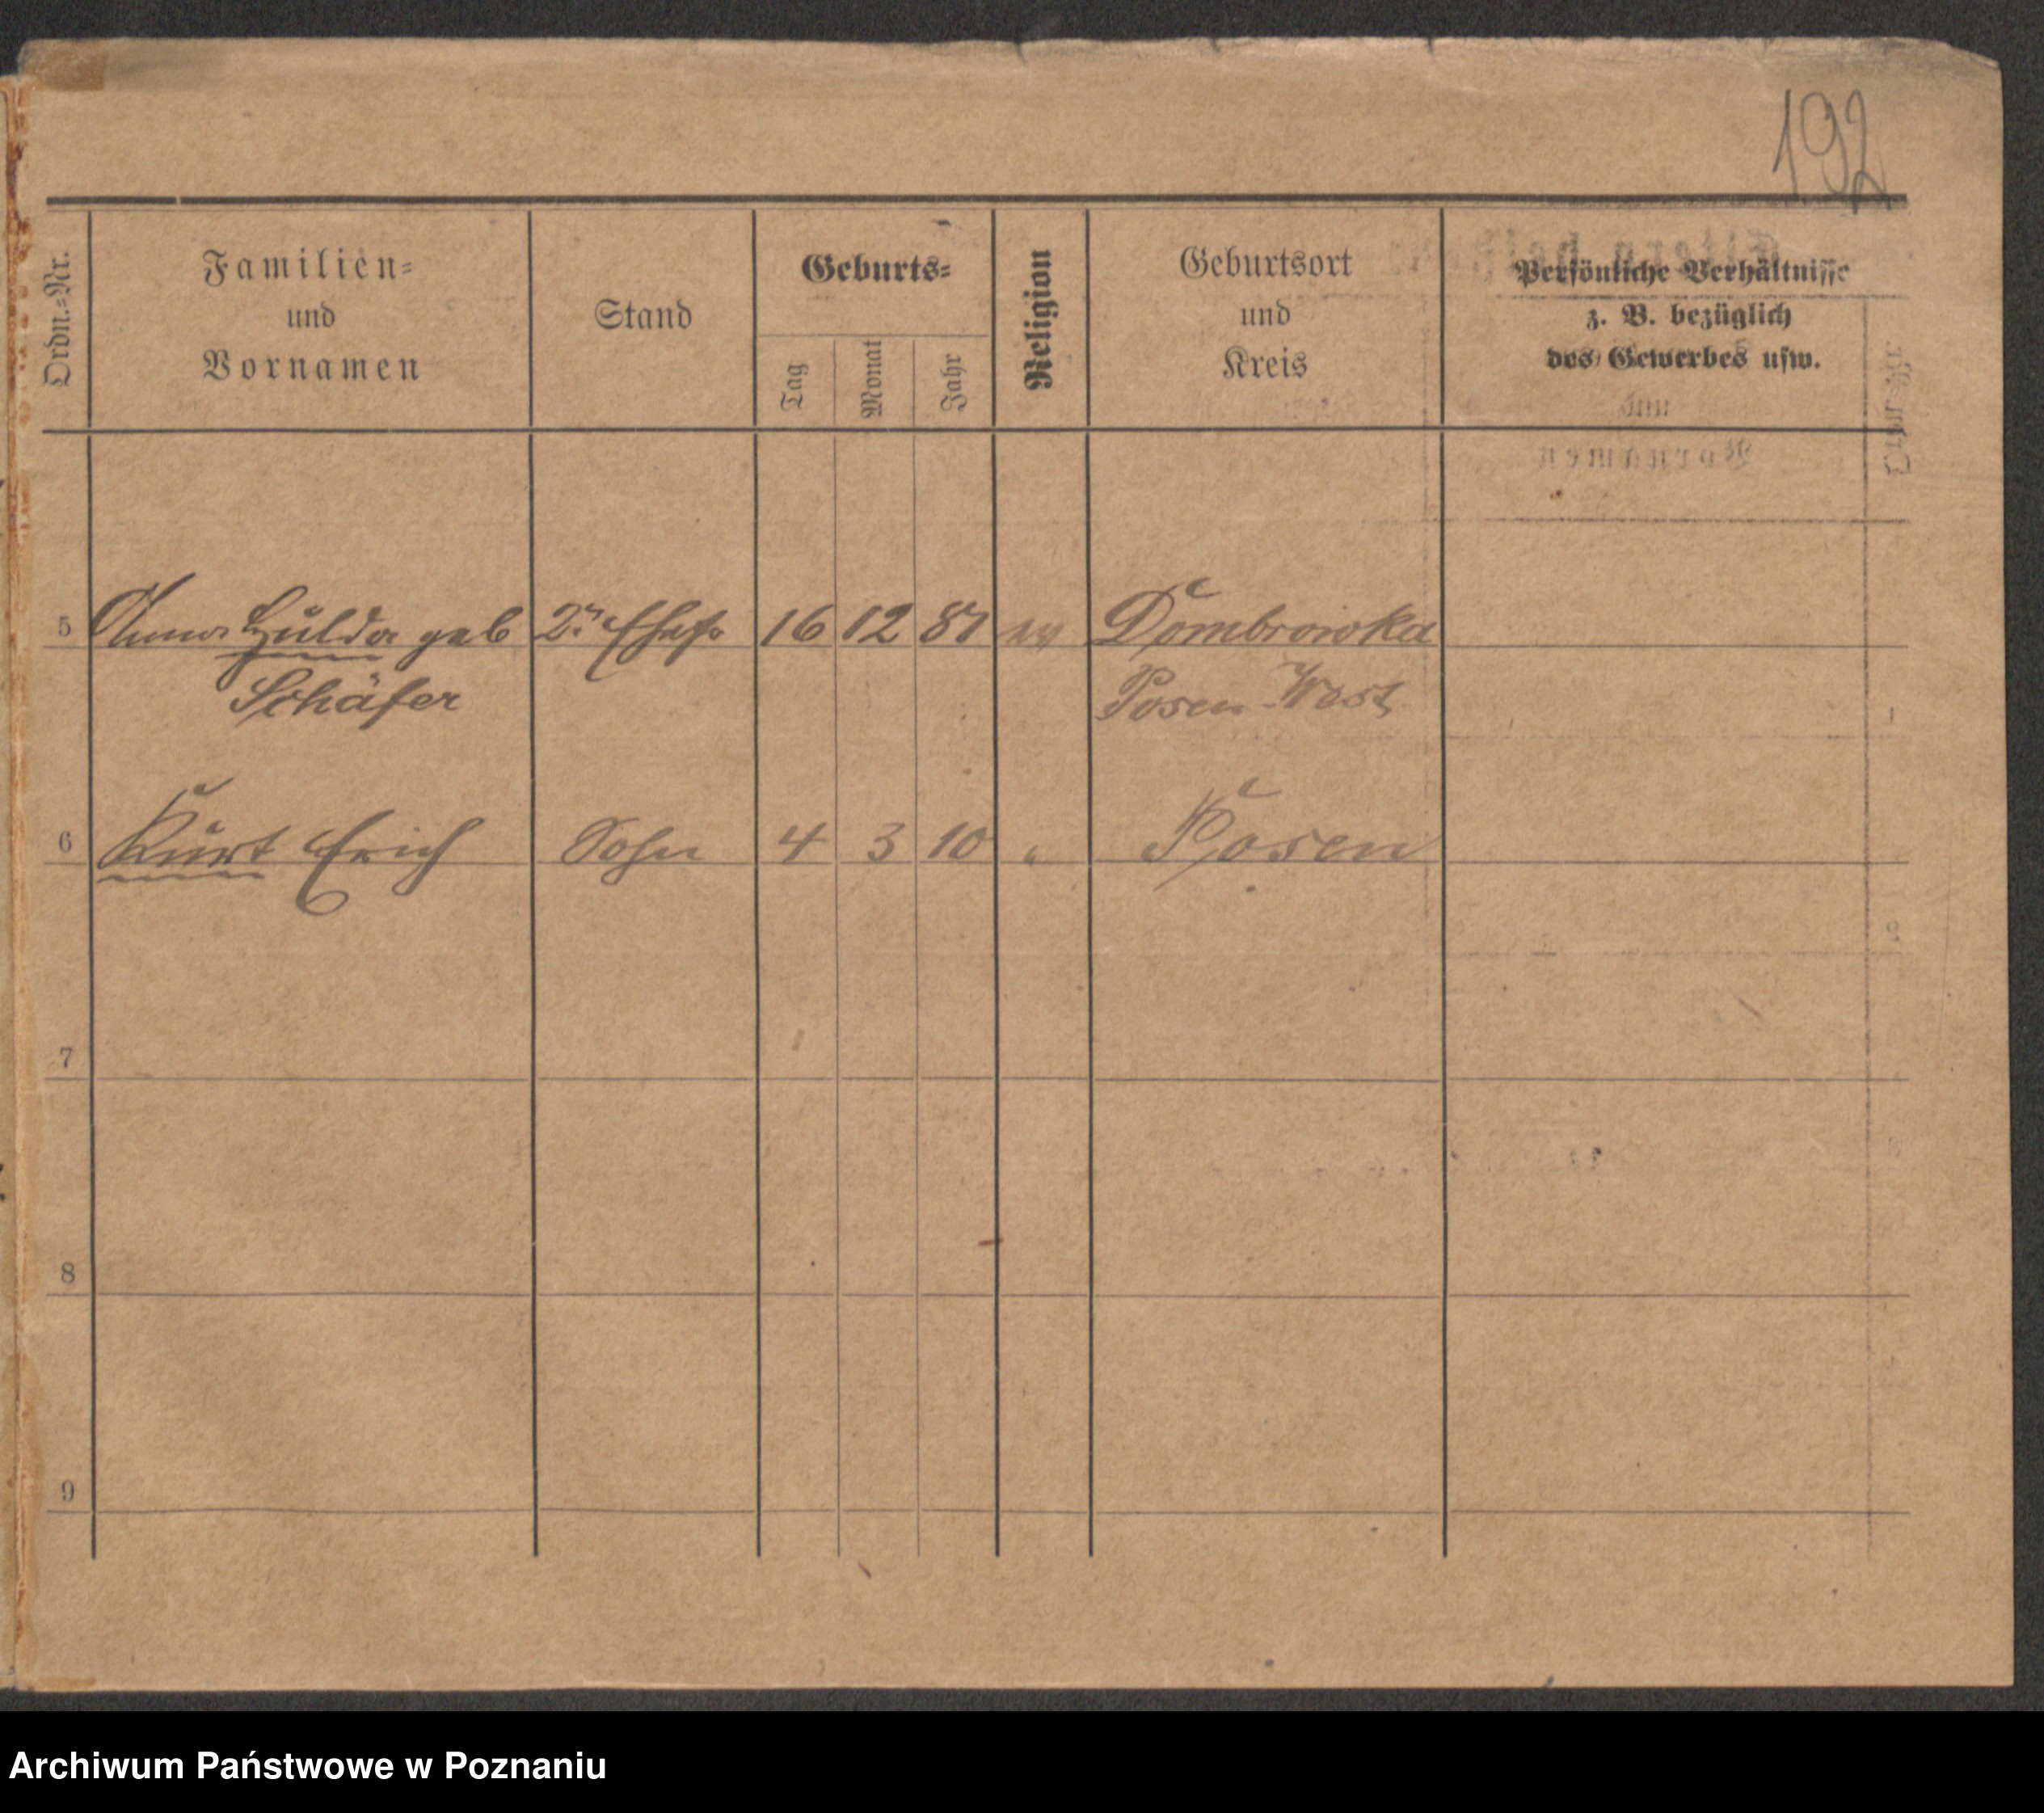 192
Ordn.=Nr.
Familien=
und
Vornamen
Stand
Geburts=
Tag
Monat
Jahr
Religion
Geburtsort
und
Kreis
Persönliche Verhältnisse
z. B. bezüglich
des Gewerbes usw.
5 Anna Hulda geb 2te Ehefr 16 12 87 ev Dombrowka
Schäfer Posen West
6 Kurt Erich Sohn 4 3 10 " Posen
7
8
9
Archiwum Państwowe w Poznaniu